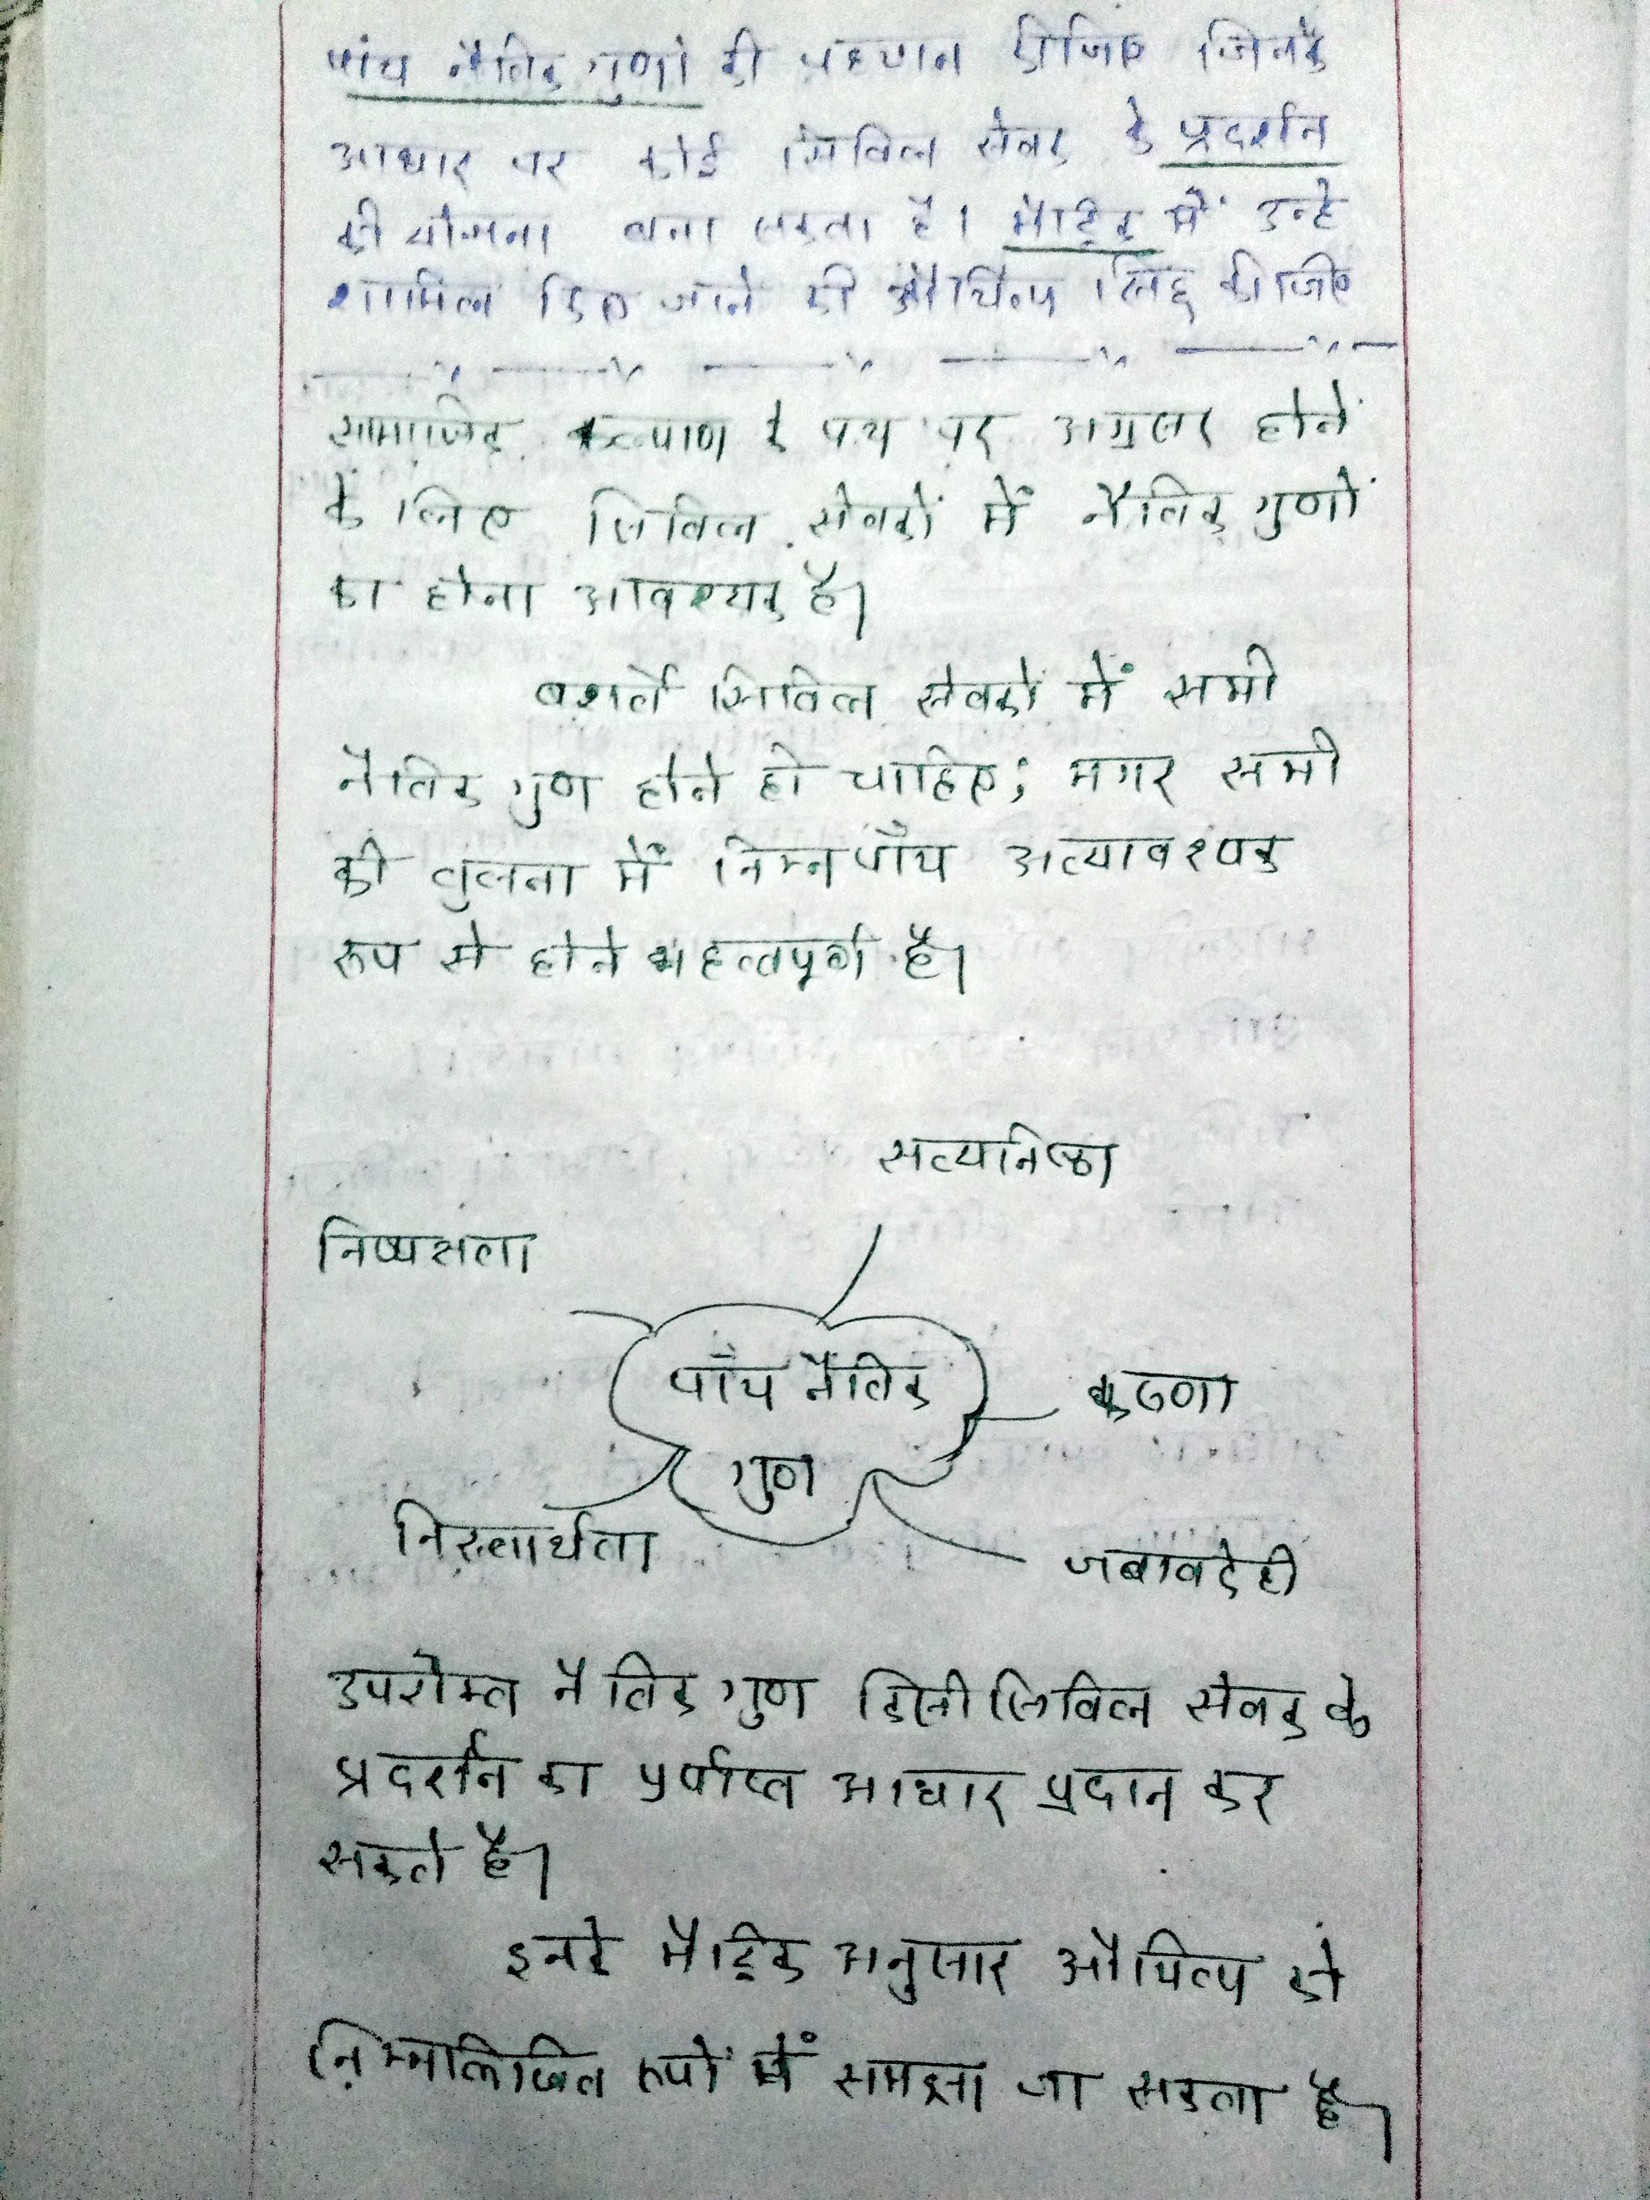 पांच नैतिक गुणों की पहचान कीजिए जिनके
आधार पर कोई सिविल सेवक के प्रदर्शन
की योजना बना सकता है। मैट्रिक में उन्हे
शामिल किए जाने की औचित्य सिद्द कीजिए
सामाजिक कल्याण के पथ पर अग्रसर होने
के लिए सिविल सेवकों में नैतिक गुणों
का होना आवश्यक है।
बशर्ते सिविल सेवकों में सभी
नैतिक गुण होने ही चाहिए; मगर सभी
की तुलना में निम्न पाँच अत्यावश्यक
रूप से होने महत्वपूर्ण है।
सत्यनिष्ठा
निष्पक्षता
पाँच नैतिक
गुण
करुणा
निस्वार्थता
जबावदेही
उपरोक्त नैतिक गुण किसी सिविल सेवक के
प्रदर्शन का पर्याप्त आधार प्रदान कर
सकते है।
इनके मैट्रिक अनुसार औचित्य को
निम्नलिखित रूपों में समझा जा सकता है।